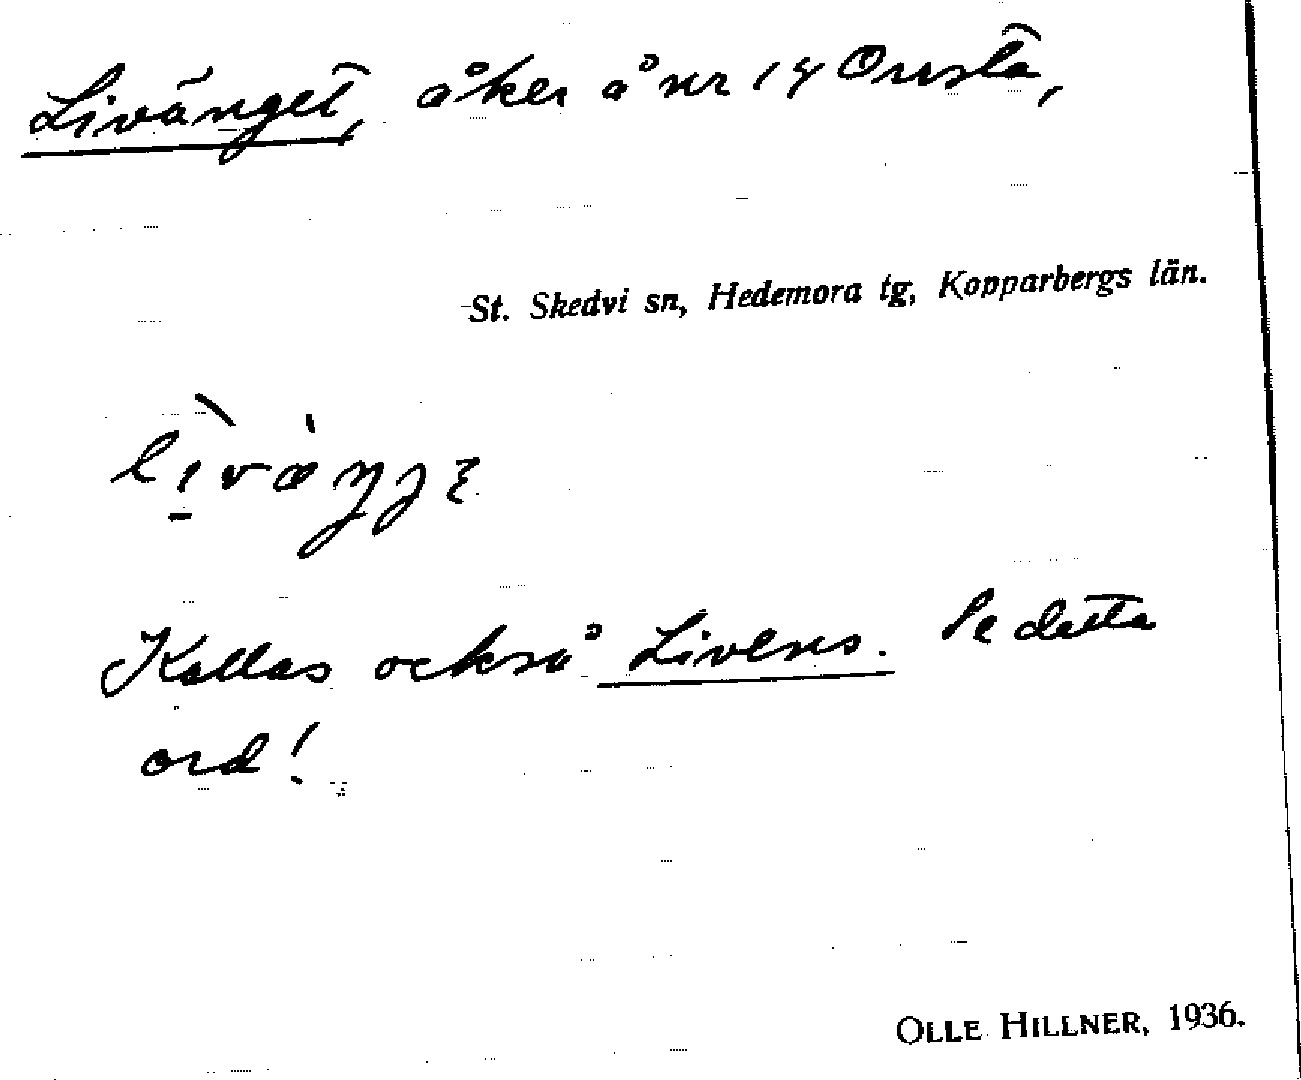 Livänget, åker å nr 14 Onsta,
St. Skedvi sn, Hedemora tg, Kopparbergs län.
Kallas också Livens. Se detta
ord!
OLLE HILLNER, 1936.